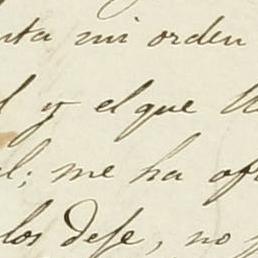 nta mi orden
l y el que
l; me ha
los defe, no